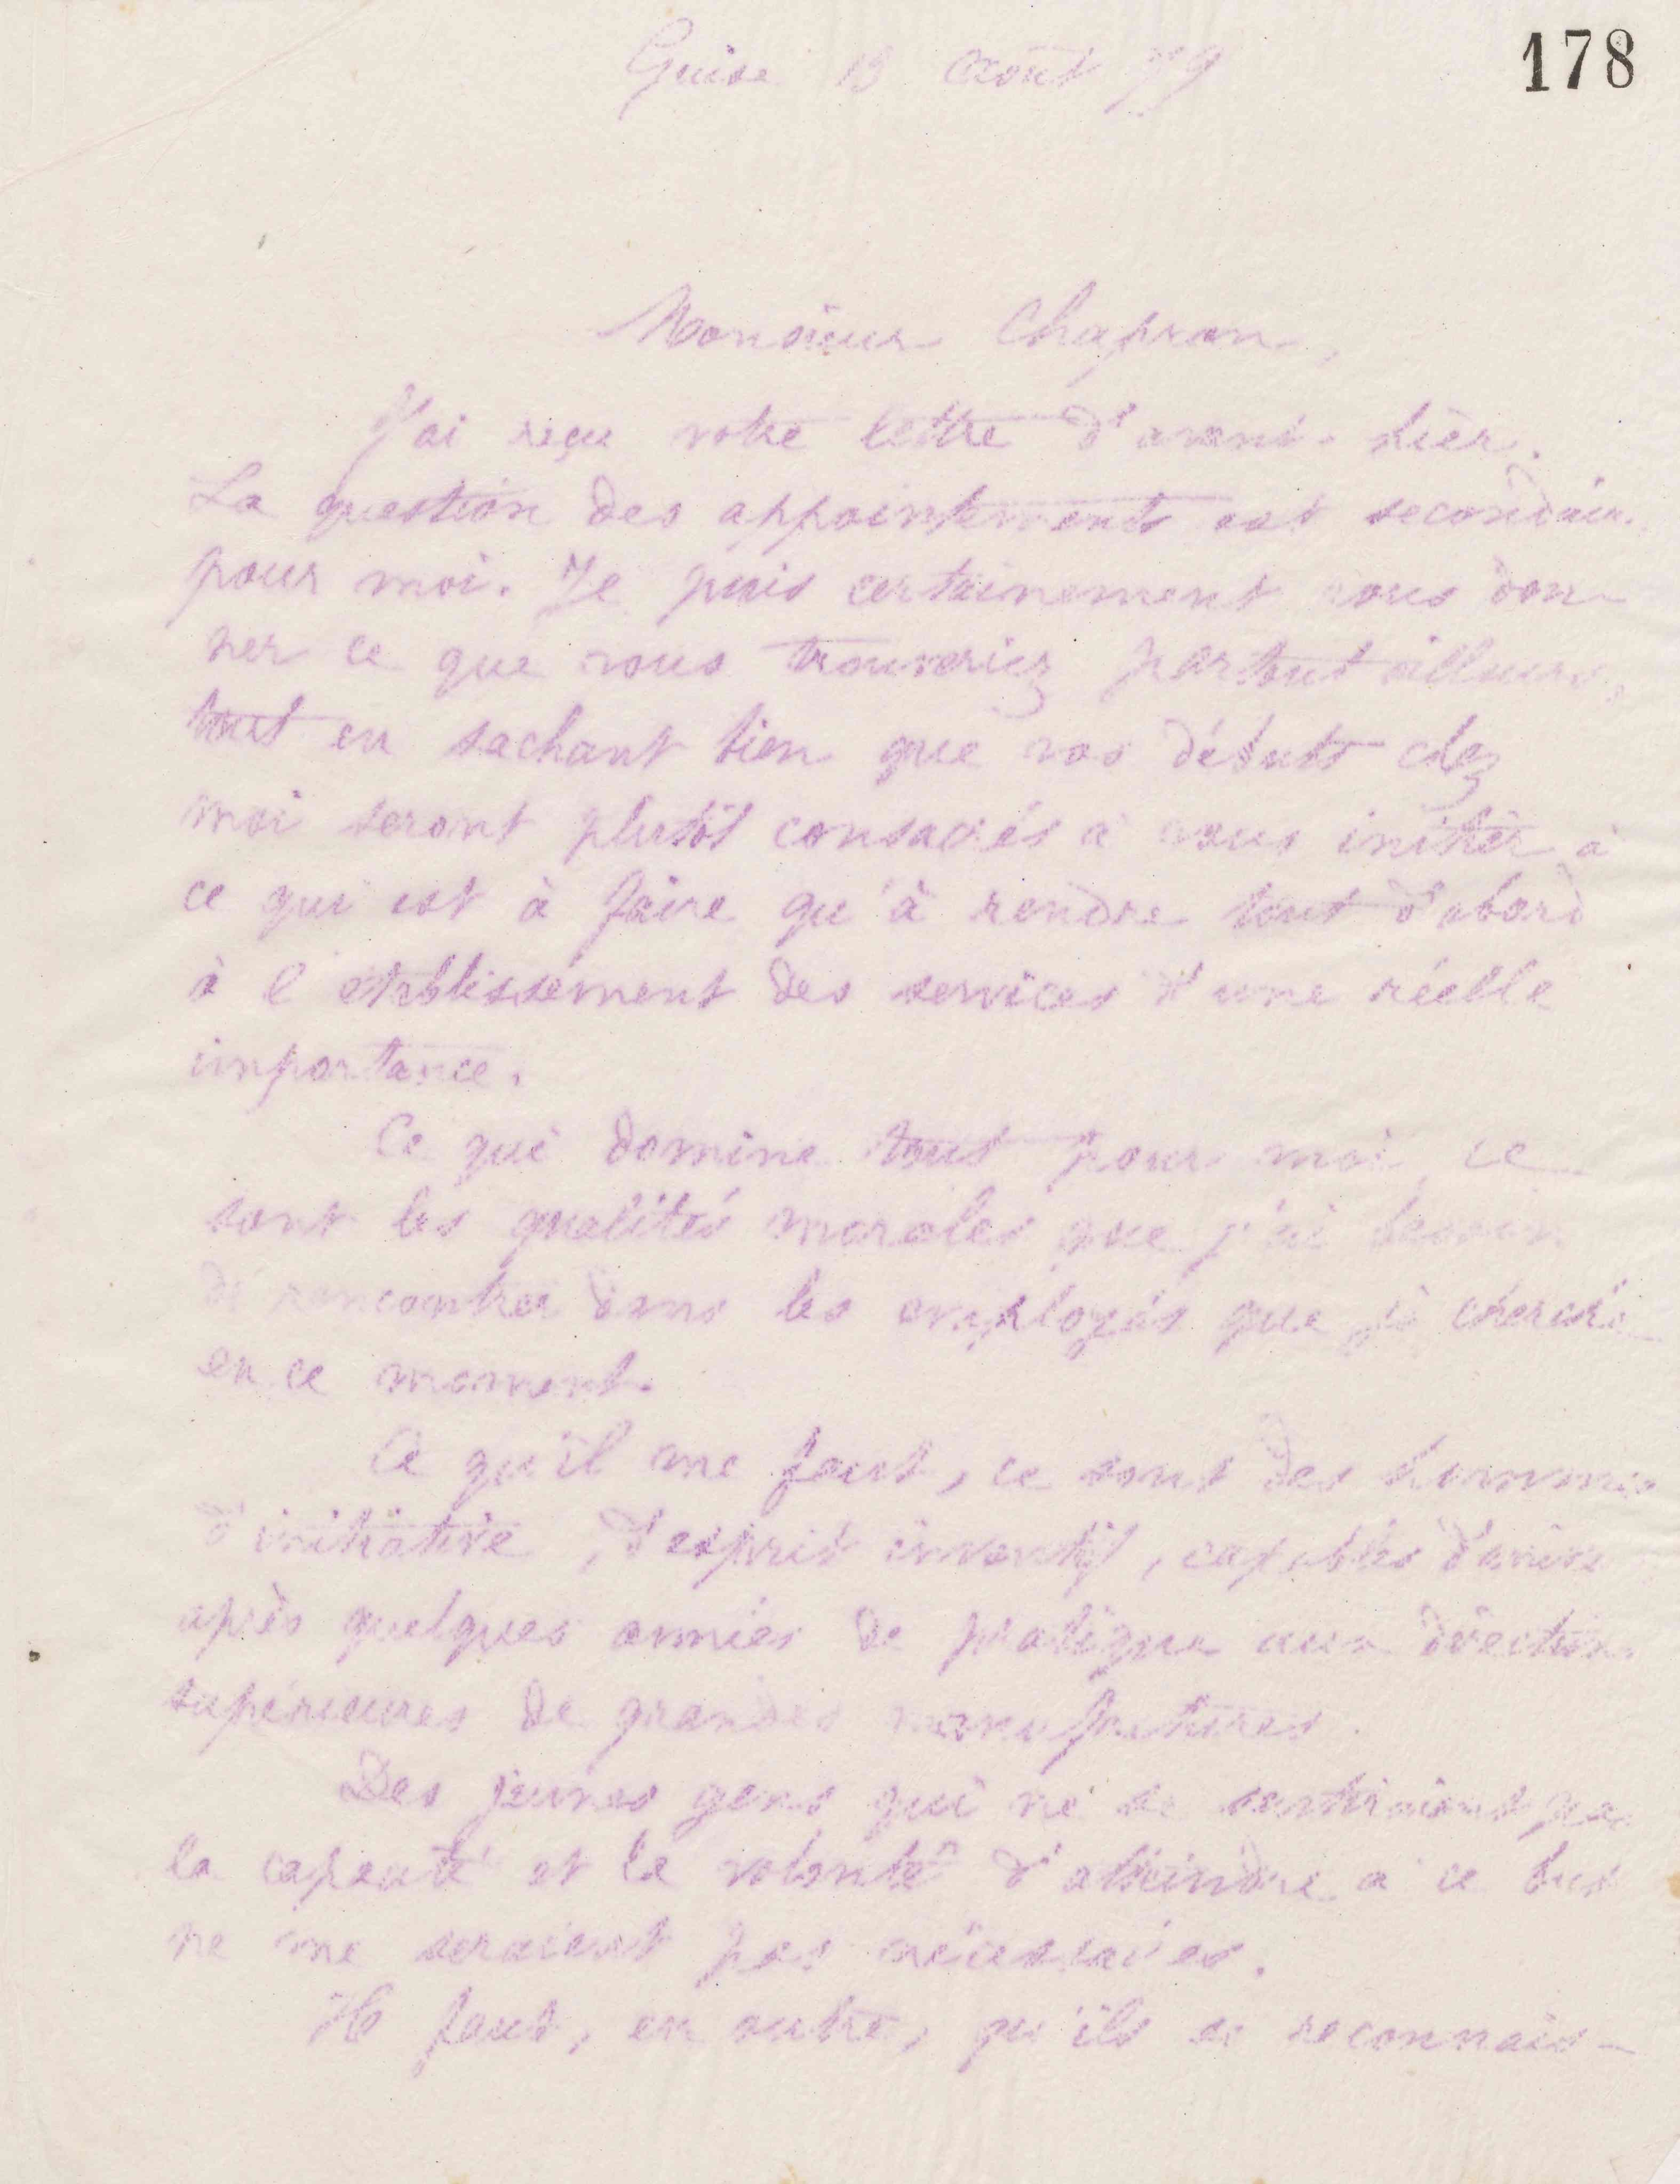 178
Guise 13 Août 79
Monsieur Chapron,
J'ai reçu votre lettre d'avant-hier.
La question des appointements est secondaire
pour moi. Je puis certainement vous don-
ner ce que vous trouveriez partout ailleurs,
tout en sachant bien que vos débuts chez
moi seront plutôt consacrés à vous initier à
ce qui est à faire qu'à rendre tout d'abord
à l'etablissement des services d'une réelle
importance.
Ce qui domine tout pour moi, ce
sont les qualités morales que j'ai besoin
de rencontrer dans les employés que je cherche
en ce moment.
Ce qu'il me faut, ce sont des hommes
d'initiative, d'esprit inventif, capables d'arriver
après quelques années de pratique aux directions
supérieures de grandes manufactures.
Des jeunes gens qui ne se sentiraient pas
la capacité et la volonté d'atteindre à ce but
ne me seraient pas nécessaires.
Il faut, en outre, qu'ils se reconnais-